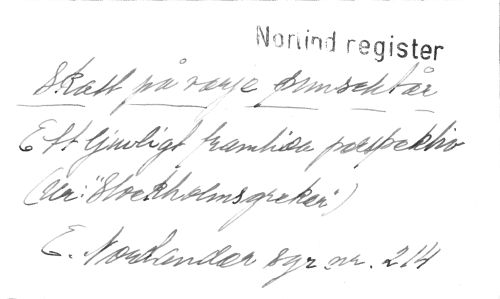 Norlind register
Skatt på varje
Ett ljuvligt framtida perspektiv
(Ur: "Stockholmsgreker")
E. Norlander sgr. nr. 214